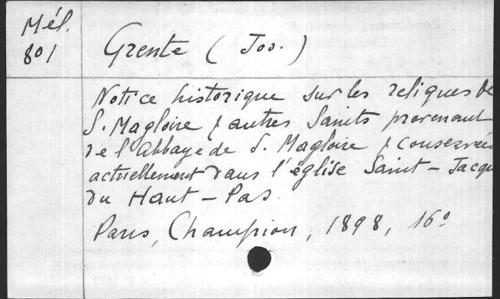 Mél.
801
Grente ( Jos. )
Notice historique sur les reliques de
S. Magloire & autres Saints provenant
de l'abbaye de S. Magloire & conservées
actuellement dans l'église Saint-Jacques
du Haut-Pas.
Paris, Champion, 1898, 16º